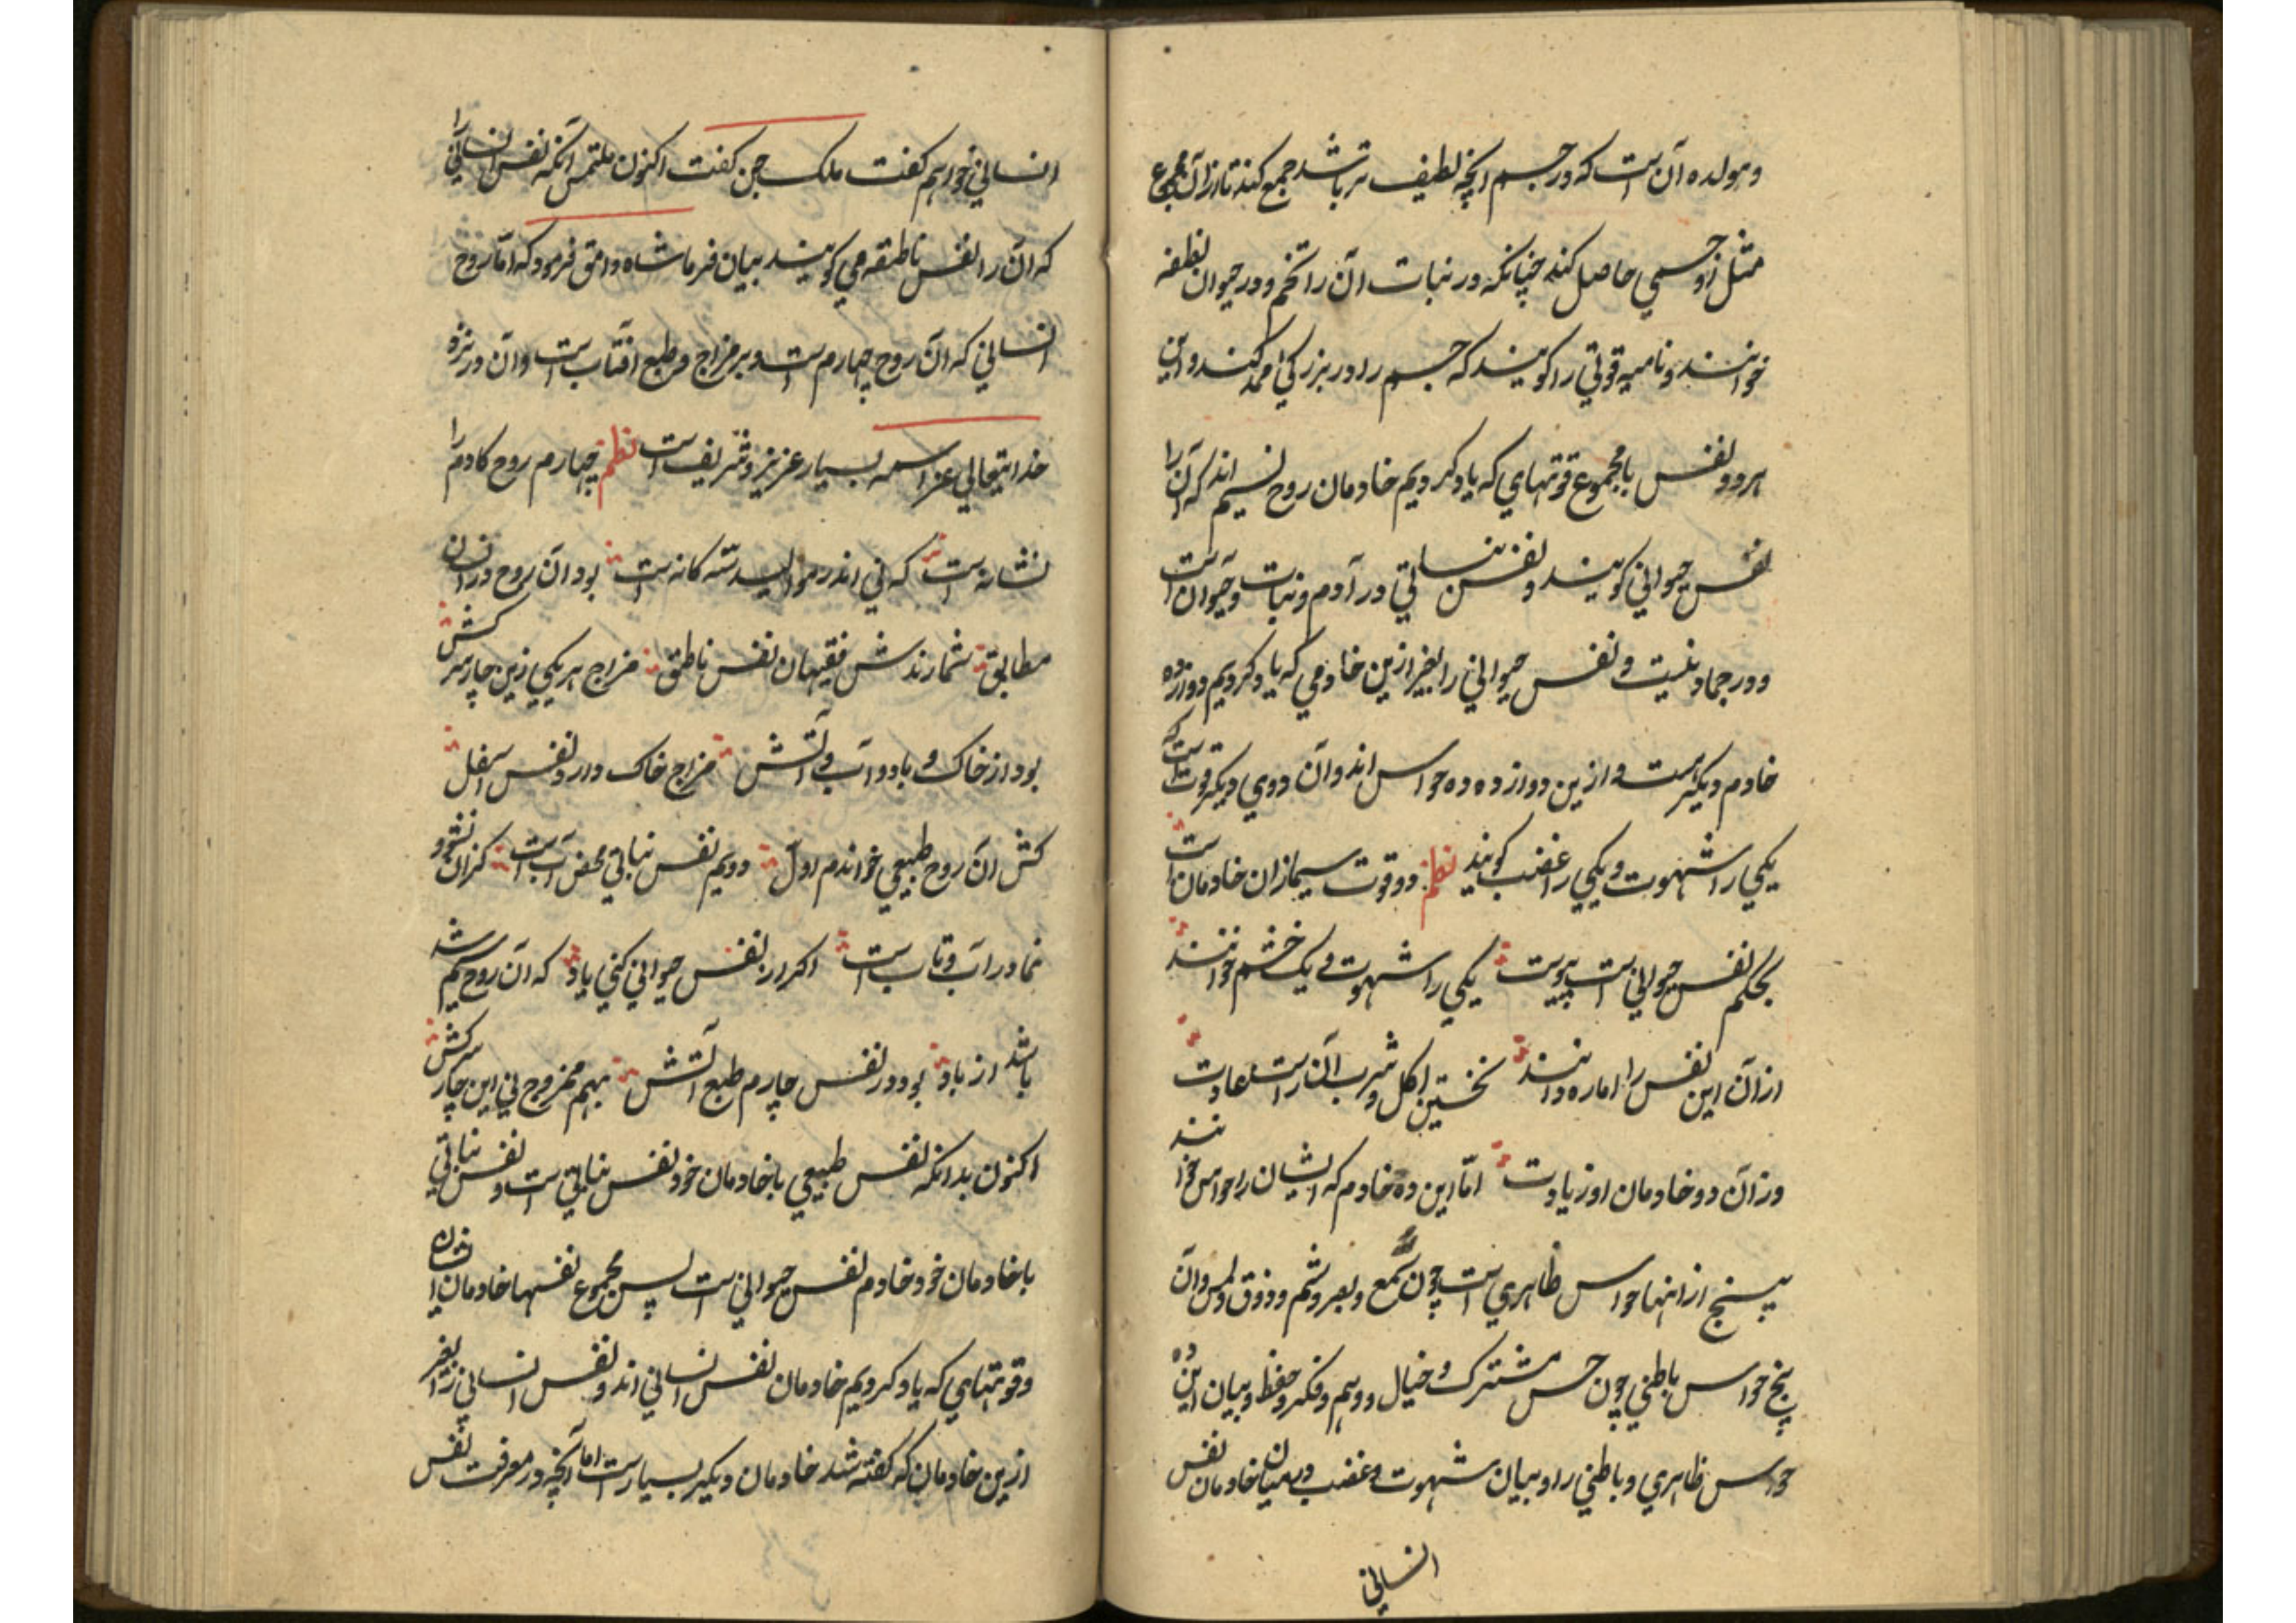 ومولده آن است که در جسم انچه لطیف تر باشد جمع کند تا از آن مجموع
مثل او جسمی حاصل کند چنانکه در نبات آن را تخم و در حیوان نطفه
خوانند و نامیه قوتی را کویند که جسم را در بزرکی مدد کند و این
هر دو نفس با مجموع قوتهای که یاد کردیم خادمان روح سیم اند که آن را
نفس حیوانی کویند و نفس نباتی در آدم و نبات و حیوان است
و در جماد نیست و نفس حیوانی را بغیر ازین خادمی که یاد کردیم دوازده
خادم دیکر است و ازین دوازده ده حواس اند و آن دوی دیکر قوت است که
یکی را شهوت و یکی را غضب کویند نظم دو قوت سیم از ان خادمان است
بحکم نفس حیوانی است پیوست یکی را شهوت و یک خشم خوانند
از آن این نفس را اماره دانند نخستین اکل و شرب آن راست عادت
وز آن دو خادمان او زیادت اما این ده خادم که ایشان را حواس خوانند
پنج از انها حواس ظاهری است چون سمع و بصر و شم و ذوق و لمس و آن
پنج حواس باطنی چون حس مشترک و خیال و وهم و فکر و حفظ و بیان این ده
حواس ظاهری و باطنی را و بیان شهوت و غضب در میان خادمان نفس
انسانی
انسانی خواهم کفت ملک چین کفت اکنون ملتمس آنکه نفس انسانی را
که آن را نفس ناطقه می کویند بیان فرما شاه وامق فرمود که اما روح
انسانی که آن روح چهارم است و بر مزاج و طبع افتاب است و آن در نزد
خدایتعالی عز اسمه بسیار عزیز و شریف است نظم چهارم روح کادم را
نشانه است که نی اندر موالید سه کانه است بود آن روح در انسان
مطابق شمارندش فقیهان نفس ناطق مزاج هر یکی زین چار سرکش
بود از خاک و باد و آب و آتش مزاج خاک دارد نفس اسفل
کش آن روح طبیعی خواندم اول دویم نفس نباتی محض آب است کزان نشو و
نما در آب و تاب است اکر از نفس حیوانی کنی یاد که آن روح سیم شد
باشد از باد بود در نفس چارم طبع آتش بهم ممزوج نی این چار سرکش
اکنون بدانکه نفس طبیعی با خادمان خود نفس نباتی است و نفس نباتی
با خادمان خود خادم نفس حیوانی است پس مجموع نفسها خادمان
و قوتهای که یاد کردیم خادمان نفس انسانی اند و نفس انسانی را بغیر
ازین خادمان که کفته شد خادمان دیکر بسیار است اما آنچه در معرفت نفس